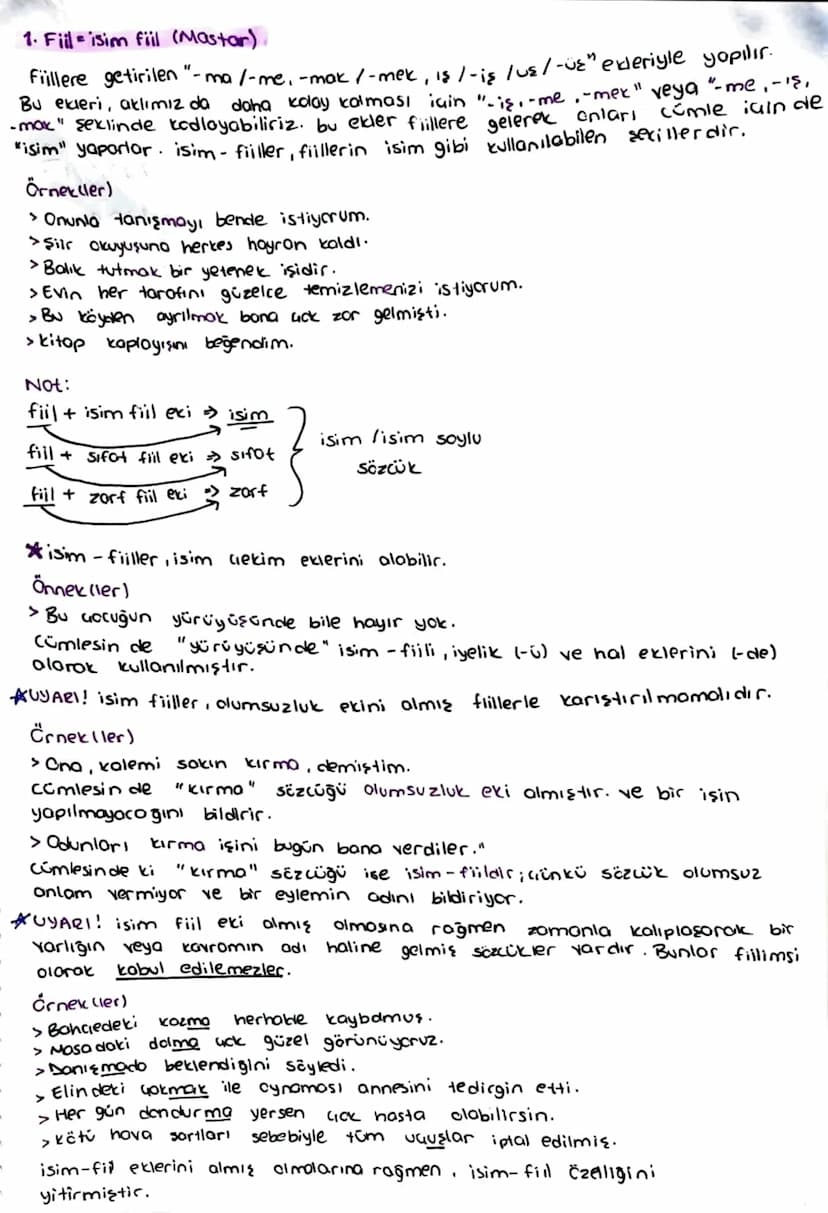 1. Fiil = isim fiil (Mastar)
Fiillere getirilen "-ma /-me, -mak / -mek, ış /-iş /uş /-üş" ekleriyle yapılır.
Bu ekleri, aklımız da daha kolay kalması için "-iş, -me, -mek" veya "-me, -ış,
-mak" şeklinde kodlayabiliriz. bu ekler fiillere gelerek onları cümle için de
"isim" yaparlar. isim - fiiller, fiillerin isim gibi kullanılabilen şekillerdir.
Örnek(ler)
> Onunla tanışmayı bende istiyorum.
> Şiir okuyuşuna herkes hayran kaldı.
> Balık tutmak bir yetenek işidir.
> Evin her tarafını güzelce temizlemenizi istiyorum.
> Bu köyden ayrılmak bana çok zor gelmişti.
> kitap kaplayışını beğendim.
Not:
fiil + isim fiil eki => isim
fiil + sıfat fiil eki => sıfat
fiil + zarf fiil eki => zarf
isim /isim soylu
sözcük
★ isim - fiiller, isim çekim eklerini alabilir.
Örnek(ler)
> Bu çocuğun yürüyüşünde bile hayır yok.
Cümlesin de "yürüyüşünde" isim - fiili, iyelik (-ü) ve hal eklerini (-de)
olarak kullanılmıştır.
★UYARI! isim fiiller, olumsuzluk ekini almış fiillerle karıştırılmamalıdır.
Örnek(ler)
> Ona, kalemi sakın kırma, demiştim.
cümlesin de "kırma" sözcüğü olumsuzluk eki almıştır. ve bir işin
yapılmayacağını bildirir.
> Odunları kırma işini bugün bana verdiler."
Cümlesinde ki "kırma" sözcüğü ise isim-fiildir; çünkü sözcük olumsuz
anlam vermiyor ve bir eylemin adını bildiriyor.
★UYARI! isim fiil eki almış olmasına rağmen zamanla kalıplaşarak bir
varlığın veya kavramın adı haline gelmiş sözcükler vardır. Bunlar fiilimsi
olarak kabul edilemezler.
Örnek(ler)
> Bahçedeki kazma herhalde kaybolmuş.
> Masadaki dolma çok güzel görünüyoruz.
> Danışmada beklendiğini söyledi.
> Elindeki çakmak ile oynaması annesini tedirgin etti.
> Her gün dondurma yersen çok hasta olabilirsin.
> kötü hava şartları sebebiyle tüm uçuşlar iptal edilmiş.
isim-fiil eklerini almış olmalarına rağmen, isim-fiil özelliğini
yitirmiştir.